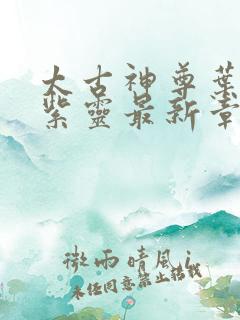 太古神尊葉
紫靈最新章
微雨晴风i
未经同意禁止转载